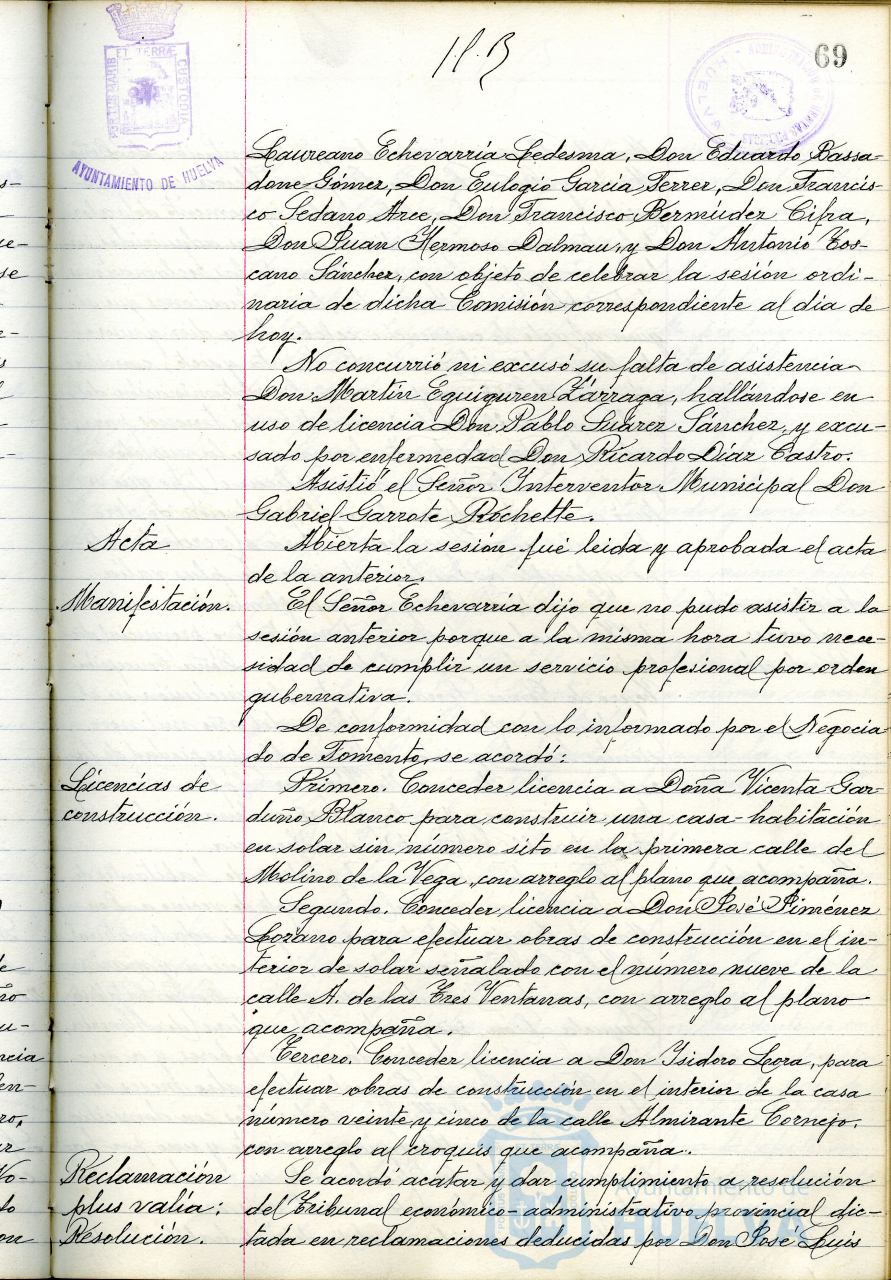 69
PORTUS MARIS ET TERRÆ CUSTODIA
AYUNTAMIENTO DE HUELVA
Laureano Echevarría Ledesma, Don Eduardo Bassa-
done Gómez, Don Eulogio García Ferrer, Don Francis-
co Sedano Arce, Don Francisco Bermúdez Cifra,
Don Juan Hermoso Dalmau, y Don Antonio Tos-
cano Sánchez, con objeto de celebrar la sesión ordi-
naria de dicha Comisión correspondiente al día de
hoy.
No concurrió ni excusó su falta de asistencia
Don Martín Eguiguren Zárraga, hallándose en
uso de licencia Don Pablo Suárez Sánchez, y excu-
sado por enfermedad Don Ricardo Díaz Castro.
Asistió el Señor Interventor Municipal Don
Gabriel Garrote Rochette.
Acta
Abierta la sesión fué leida y aprobada el acta
de la anterior.
Manifestación.
El Señor Echevarría dijo que no pudo asistir a la
sesión anterior porque a la misma hora tuvo nece-
sidad de cumplir un servicio profesional por orden
gubernativa.
De conformidad con lo informado por el Negocia
do de Fomento, se acordó:
Licencias de
construcción.
Primero. Conceder licencia a Doña Vicenta Gar-
duño Blanco para construir una casa-habitación
en solar sin número sito en la primera calle del
Molino de la Vega, con arreglo al plano que acompaña.
Segundo. Conceder licencia a Don José Jiménez
Lozano para efectuar obras de construcción en el in-
terior de solar señalado con el número nueve de la
calle A. de las Tres Ventanas, con arreglo al plano
que acompaña.
Tercero. Conceder licencia a Don Isidoro Lora, para
efectuar obras de construcción en el interior de la casa
número veinte y cinco de la calle Almirante Cornejo,
con arreglo al croquis que acompaña.
Reclamación
plus valía:
Resolución.
Se acordó acatar y dar cumplimiento a resolución
del Tribunal económico-administrativo provincial dic-
tada en reclamaciones deducidas por Don José Luis
Ayuntamiento de
HUELVA